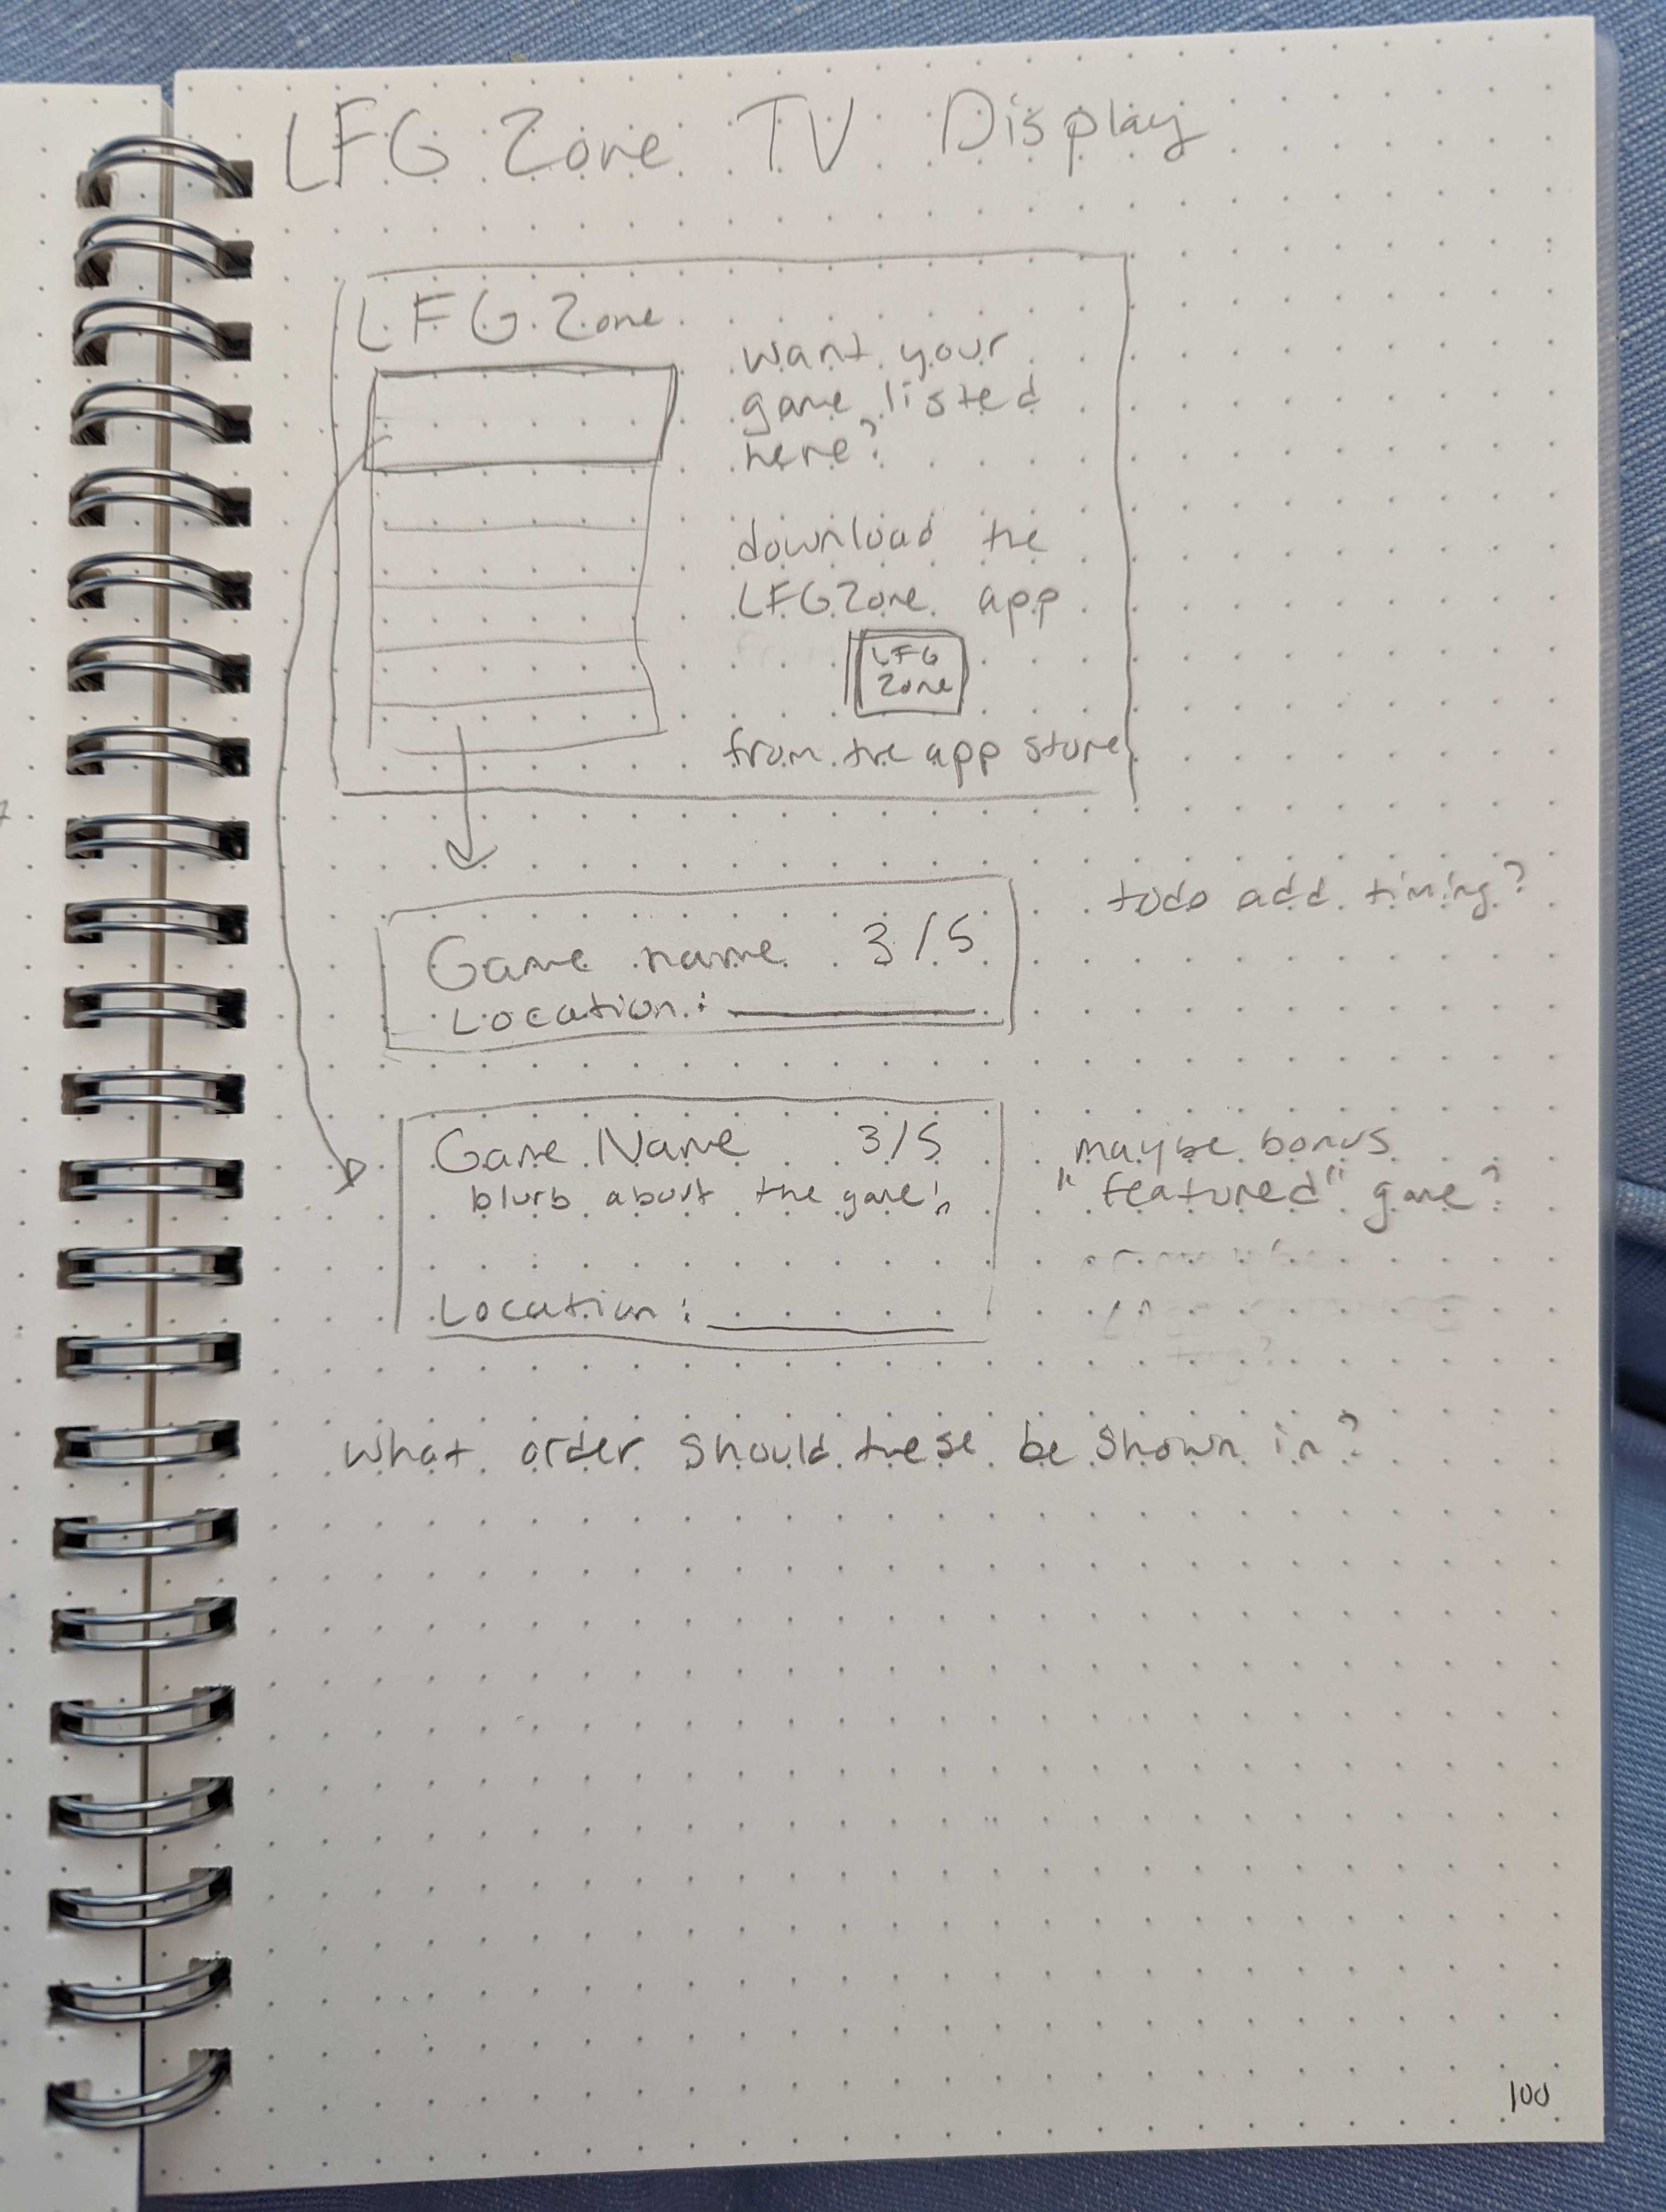 LFG Zone TV Display
LFG Zone
want your
game listed
here?
download the
LFGZone app
LFG
Zone
from the app store
todo add timing?
Game name 3/5
Location:
Game Name 3/5
blurb about the game!
Location:
maybe bonus
"featured" game?
what order should these be shown in?
100